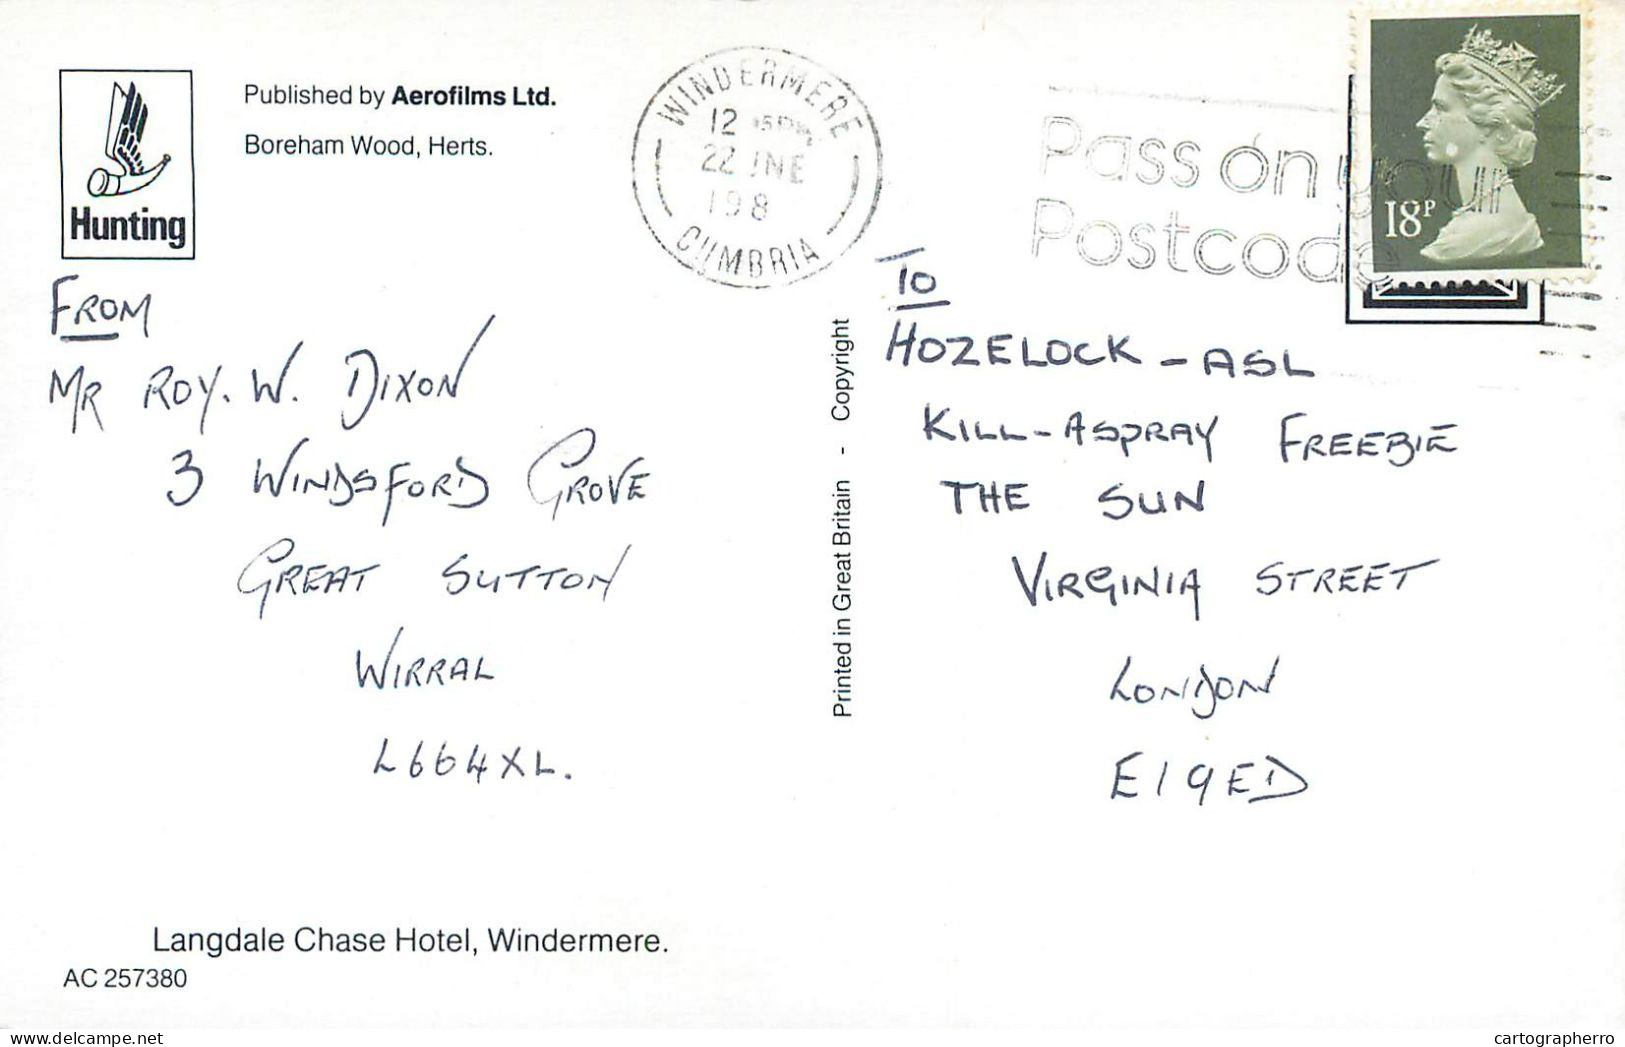 Hunting
Published by Aerofilms Ltd.
Boreham Wood, Herts.
WINDERMERE
12
22 JNE
198
CUMBRIA
Pass on your
Postcode
18P
FROM
MR ROY. W. DIXON
3 WINDSFORD GROVE
GREAT SUTTON
WIRRAL
L664XL.
Printed in Great Britain - Copyright
TO
HOZELOCK - ASL
KILL-ASPRAY FREEBIE
THE SUN
VIRGINIA STREET
LONDON
E19ED
Langdale Chase Hotel, Windermere.
AC 257380
www.delcampe.net
cartographerro